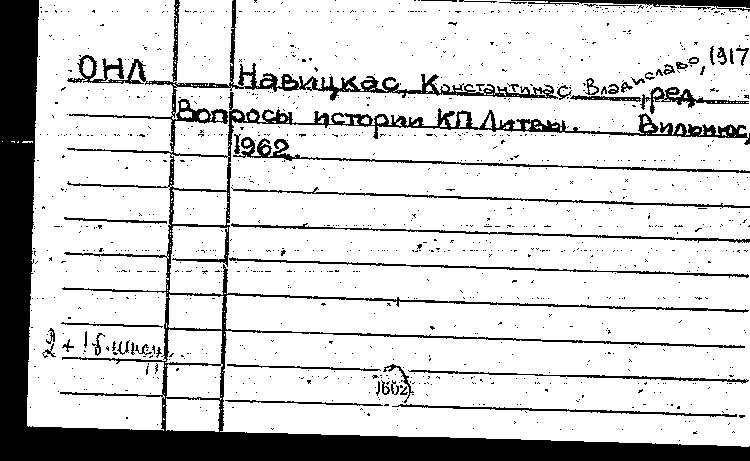 ОНЛ Навицкас, Константинас Владиславо, 1917
ред.
Вопросы истории КП Литвы. Вильнюс,
1962.
2 + 1 б.
1602